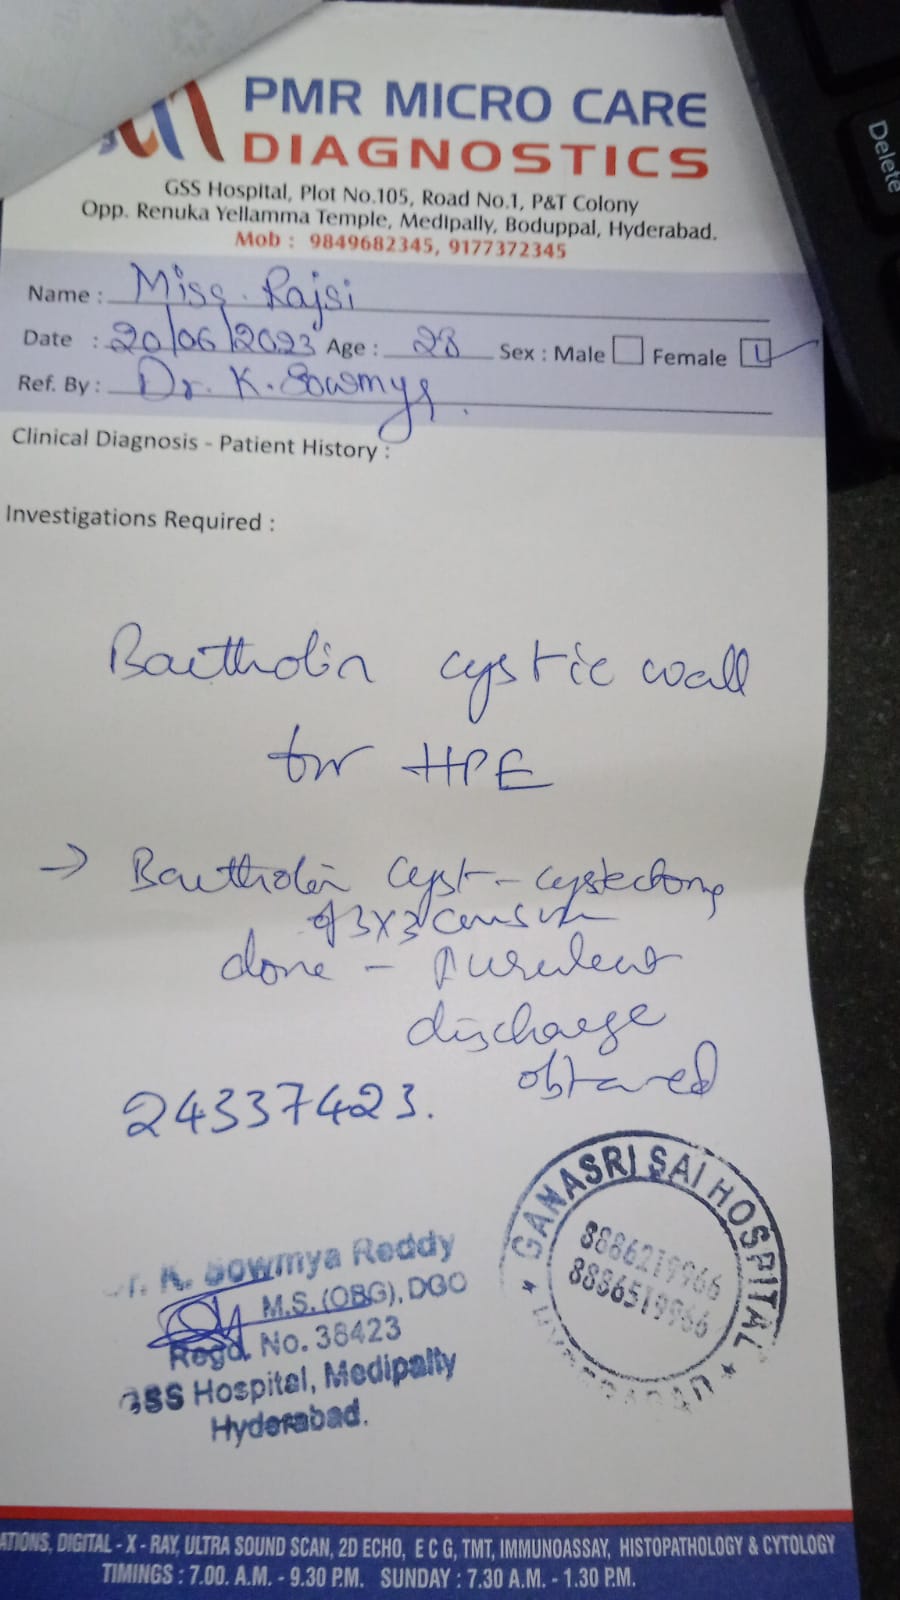 PMR MICRO CARE
DIAGNOSTICS
GSS Hospital, Plot No.105, Road No.1, P&T Colony
Opp. Renuka Yellamma Temple, Medipally, Boduppal, Hyderabad.
Mob : 9849682345, 9177372345
Name : Miss. Rajsi
Date : 20/06/2023 Age : 28 Sex : Male Female
Ref. By : Dr. K. Sowmya.
Clinical Diagnosis - Patient History :
Investigations Required :
Bartholin cystic wall
for HPE
→ Bartholin Cyst - cystectomy
of 3x3
done - Purulent
discharge
obtained
24337423.
Dr. K. Sowmya Reddy
M.S. (OBG), DGO
Regd. No. 38423
GSS Hospital, Medipally
Hyderabad.
GANASRI SAI HOSPITAL
8886219966
8886519966
HYDERABAD
ATIONS, DIGITAL - X - RAY, ULTRA SOUND SCAN, 2D ECHO, E C G, TMT, IMMUNOASSAY, HISTOPATHOLOGY & CYTOLOGY
TIMINGS : 7.00. A.M. - 9.30 P.M. SUNDAY : 7.30 A.M. - 1.30 P.M.
Delete